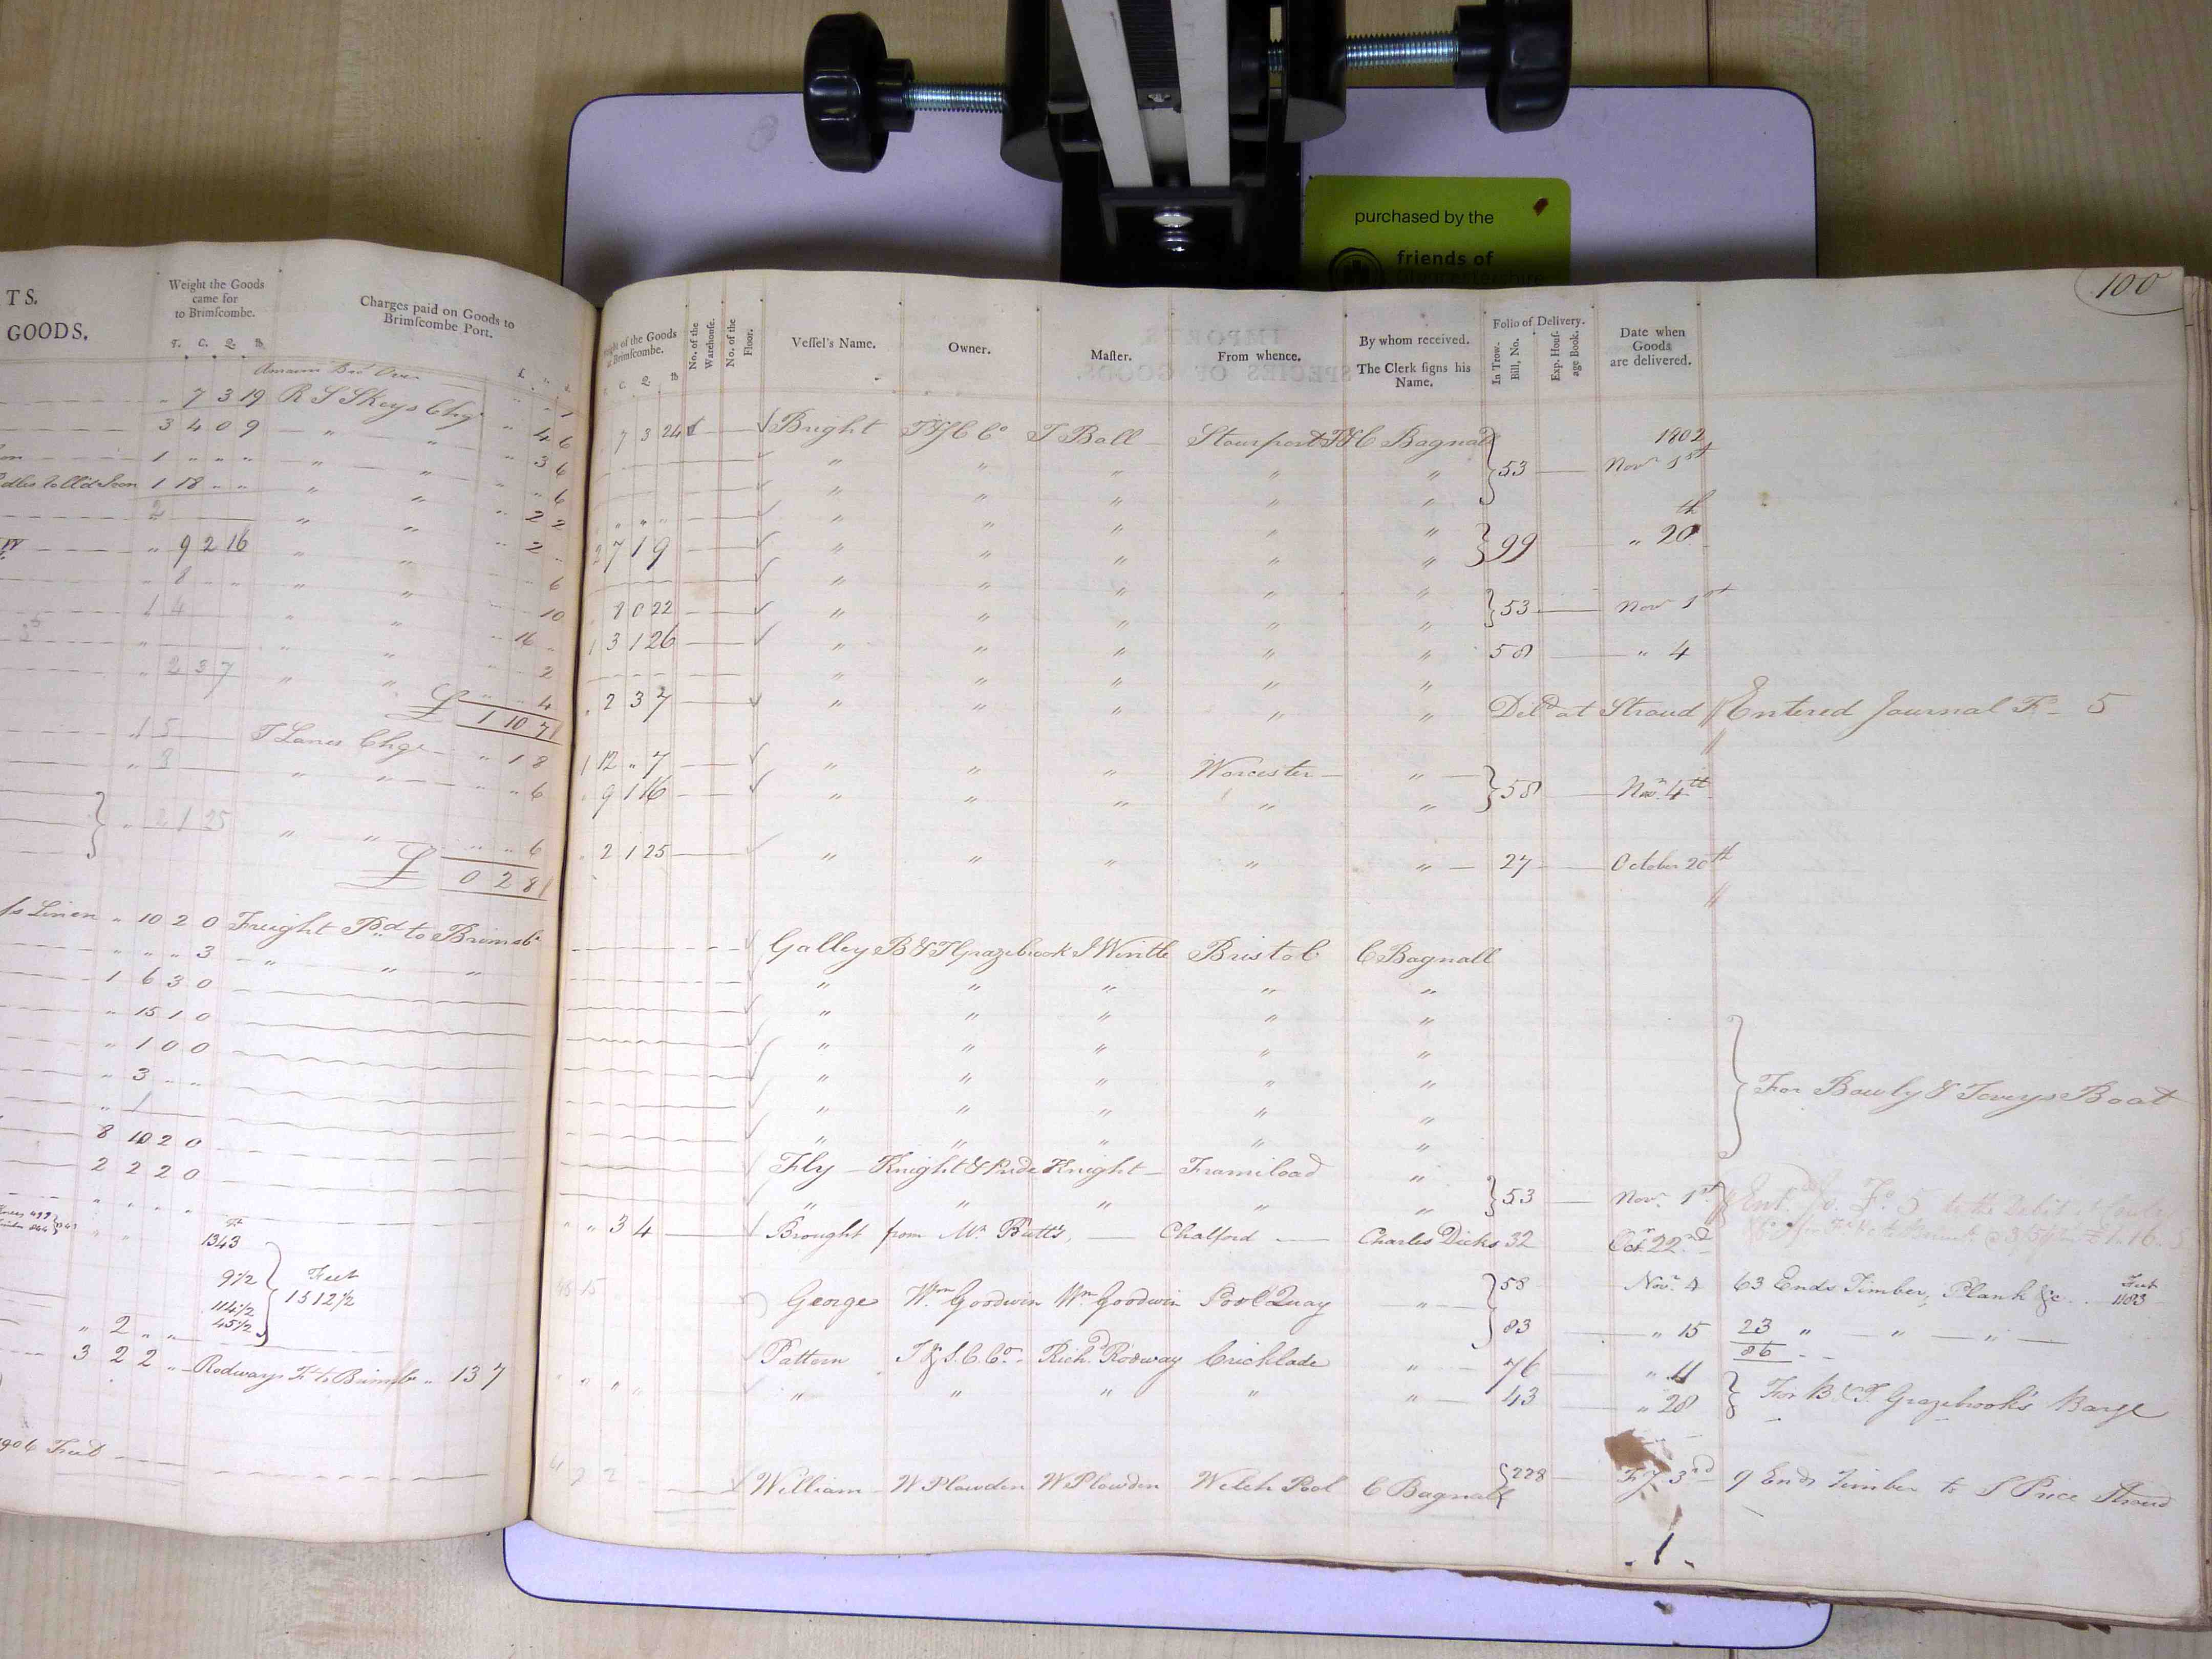 purchased by the
friends of
100
TS.
GOODS.
Weight the Goods
came for
to Brimſcombe.
T. C. Q. lb
Charges paid on Goods to
Brimſcombe Port.
" 7 3 19 R S Skeys Chgs
3 4 0 9 " " " 4 6
1 " " " " " " 3 6
1 18 " " " " " " 6
2 " " " 2 2
" 9 2 16 " " " 2 "
" 8 " " " " 6
1 4 " " 10
" " " " 16 "
" 2 3 7 " " 2
" " 4
£ 1 10 7
" 15 T Lanes Chgs " 1 8
" 3 " " " " 6
} " 2 1 25 " " " " 6
£ 0 2 8
Linen " 10 2 0 Freight Pd to Brimsb
" " " 3 " " "
1 6 3 0
" 15 1 0
" 1 0 0
" 3 " "
" 1
8 10 2 0
2 2 2 0
" " " "
Ft
1343
9 1/2
114 1/2
45 1/2
Feet
1512 1/2
" 2 " "
3 2 2 " Rodways Ft to Brimb " 13 7
Feet
of the Goods
Brimſcombe.
C. Q. lb
No. of the
Warehouſe.
No. of the
Floor.
Veſſel's Name.
Owner.
Maſter.
From whence.
By whom received.
The Clerk ſigns his
Name.
Folio of Delivery.
In Trow.
Bill, No.
Exp. Houſ-
age Book.
Date when
Goods
are delivered.
7 3 24 Bright T Ball Stourport Bagnall 1802
" " " " " } 53 Novr 1st
" " " " "
" " " " " th
2 7 1 9 " " " " " } 99 " 20
" " " " "
8 0 22 " " " " " } 53 Nov 1st
1 3 1 26 " " " " " 58 " 4
" " " " "
. 2 3 7 " " " " " Deld at Stroud Entered Journal F- 5
1 12 " 7 " " " Worcester " } 58 Nov. 4th
. 9 1 16 " " " " "
. 2 1 25 " " " " " 27 October 20th
Galley B & T Grazebrook J Wintle Bristol C Bagnall
" " " " "
" " " " "
" " " " "
" " " " " } For Bowly & Toveys Boat
" " " " "
" " " " "
Fly Knight & Pride Knight Framiload "
" " " " " } 53 Novr. 1st
" " 3 4 Brought from Mr Butts, Chalford Charles Dicks 32 Oct. 22nd
George Wm Goodwin Wm Goodwin Pool Quay " } 58 Novr. 4 63 Ends Timber, Plank &c. Feet 1183
83 " 15 23 " " "
86
Pattern T & S. C. Co. Richd Rodway Cricklade " 76 " 11
" " " " " " " " " 43 " 28 } For B & T. Grazebrook's Barge
William W Plowden W Plowden Welch Pool C Bagnall 228 3rd 9 Ends Timber to S Price Stroud
1